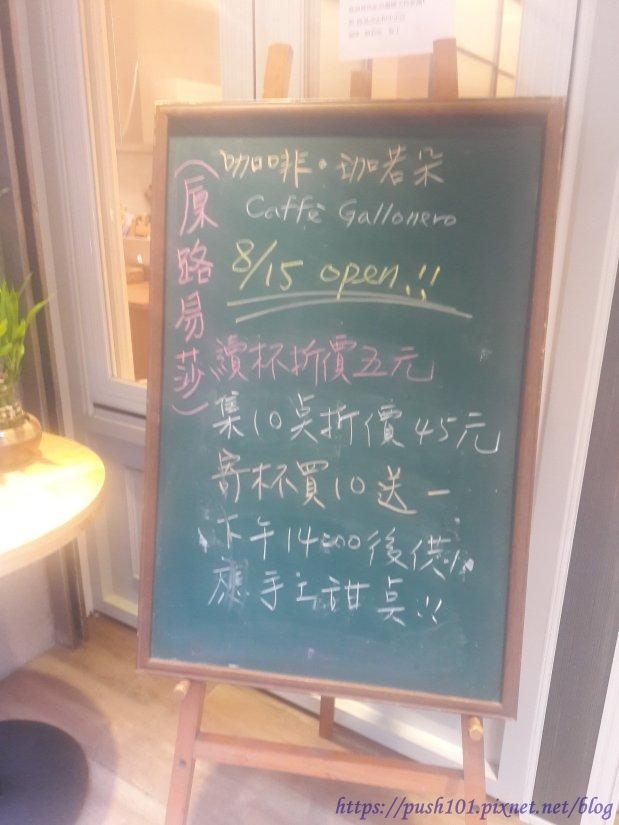 咖啡・珈若朵
Caffè Gallonero
(原路易莎)
8/15 open!!
續杯折價五元
集10点折價45元
寄杯買10送一
下午14:00後供
應手工甜点!!
https://push101.pixnet.net/blog